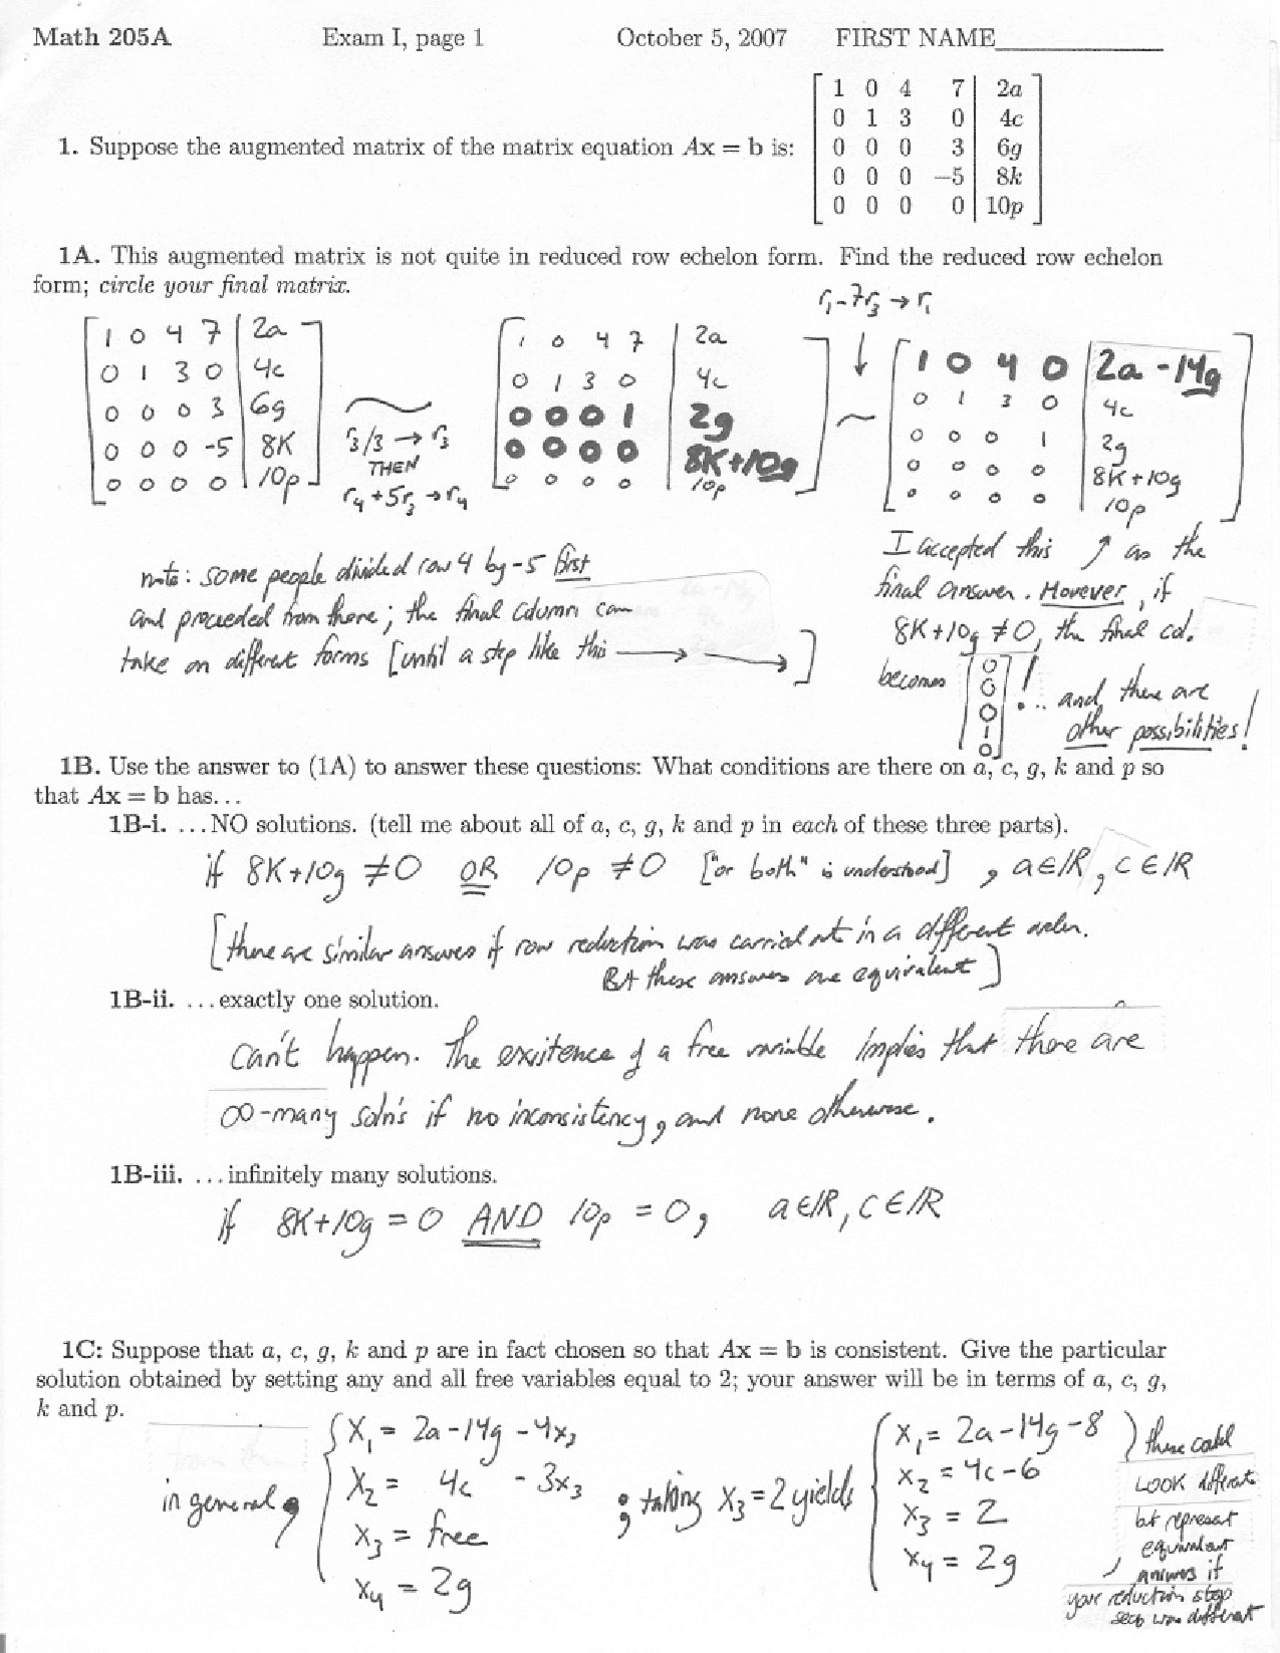 Math 205A Exam I, page 1 October 5, 2007 FIRST NAME
1. Suppose the augmented matrix of the matrix equation Ax = b is:
1 0 4 7 | 2a
0 1 3 0 | 4c
0 0 0 3 | 6g
0 0 0 −5 | 8k
0 0 0 0 | 10p
1A. This augmented matrix is not quite in reduced row echelon form. Find the reduced row echelon
form; circle your final matrix.
1 0 4 7 | 2a
0 1 3 0 | 4c
0 0 0 3 | 6g
0 0 0 -5 | 8K
0 0 0 0 | 10p
~
r3/3 → r3
THEN
r4 + 5r3 → r4
1 0 4 7 | 2a
0 1 3 0 | 4c
0 0 0 1 | 2g
0 0 0 0 | 8K+10g
0 0 0 0 | 10p
r1 - 7r3 → r1
↓
~
1 0 4 0 | 2a - 14g
0 1 3 0 | 4c
0 0 0 1 | 2g
0 0 0 0 | 8K+10g
0 0 0 0 | 10p
note: some people divided row 4 by -5 first
and proceeded from there; the final column can
take on different forms [until a step like this → → ]
I accepted this ↑ as the
final answer. However, if
8K+10g ≠ 0, the final col.
becomes
0
0
0
1
0
! ... and there are
other possibilities!
1B. Use the answer to (1A) to answer these questions: What conditions are there on a, c, g, k and p so
that Ax = b has...
1B-i. ...NO solutions. (tell me about all of a, c, g, k and p in each of these three parts).
if 8K+10g ≠ 0 OR 10p ≠ 0 ["or both" is understood], a ∈ ℝ, c ∈ ℝ
[there are similar answers if row reduction was carried out in a different order.
But these answers are equivalent]
1B-ii. ...exactly one solution.
can't happen. The existence of a free variable implies that there are
∞-many soln's if no inconsistency, and none otherwise.
1B-iii. ...infinitely many solutions.
if 8K+10g = 0 AND 10p = 0, a ∈ ℝ, c ∈ ℝ
1C: Suppose that a, c, g, k and p are in fact chosen so that Ax = b is consistent. Give the particular
solution obtained by setting any and all free variables equal to 2; your answer will be in terms of a, c, g,
k and p.
in general,
x1 = 2a - 14g - 4x3
x2 = 4c - 3x3
x3 = free
x4 = 2g
; taking x3 = 2 yields
x1 = 2a - 14g - 8
x2 = 4c - 6
x3 = 2
x4 = 2g
) these could
LOOK different
but represent
equivalent
answers if
your reduction steps
were different